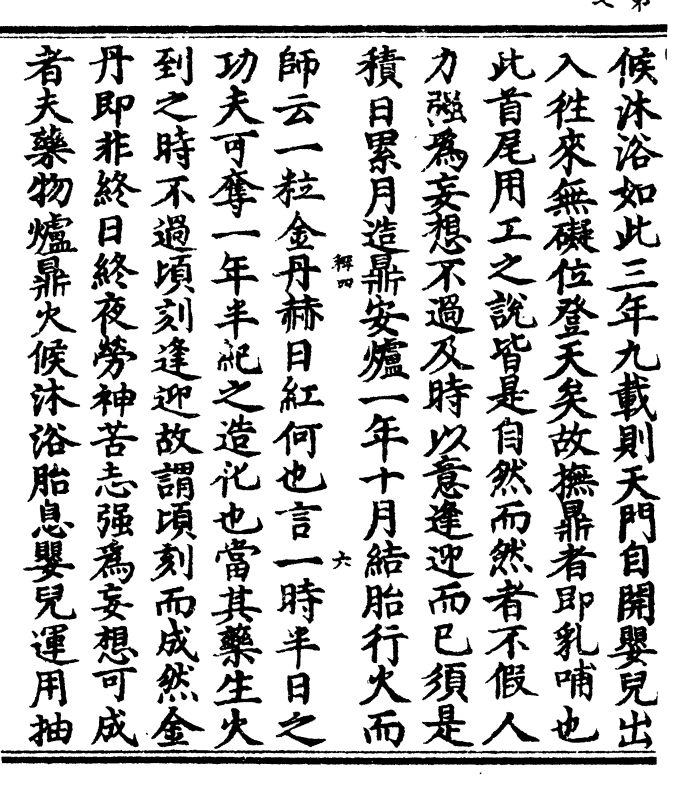 候沐浴如此三年九載則天門自開嬰兒出
入徃來無礙位登天矣故撫鼎者即乳哺也
此首尾用工之說皆是自然而然者不假人
力强爲妄想不過及時以意逢迎而巳須是
積日累月造鼎安爐一年十月結胎行火而
解四
六
師云一粒金丹赫日紅何也言一時半日之
功夫可奪一年半紀之造化也當其藥生火
到之時不過頃刻逢迎故謂頃刻而成然金
丹即非終日終夜勞神苦志强爲妄想可成
者夫藥物爐鼎火候沐浴胎息嬰兒運用抽